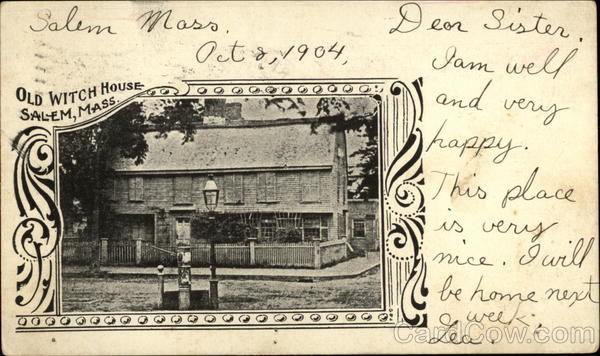 Salem Mass.
Oct 8, 1904,
OLD WITCH HOUSE
SALEM, MASS.
Dear Sister.
I am well
and very
happy.
This place
is very
nice. I will
be home next
week.
Lea.
CardCow.com